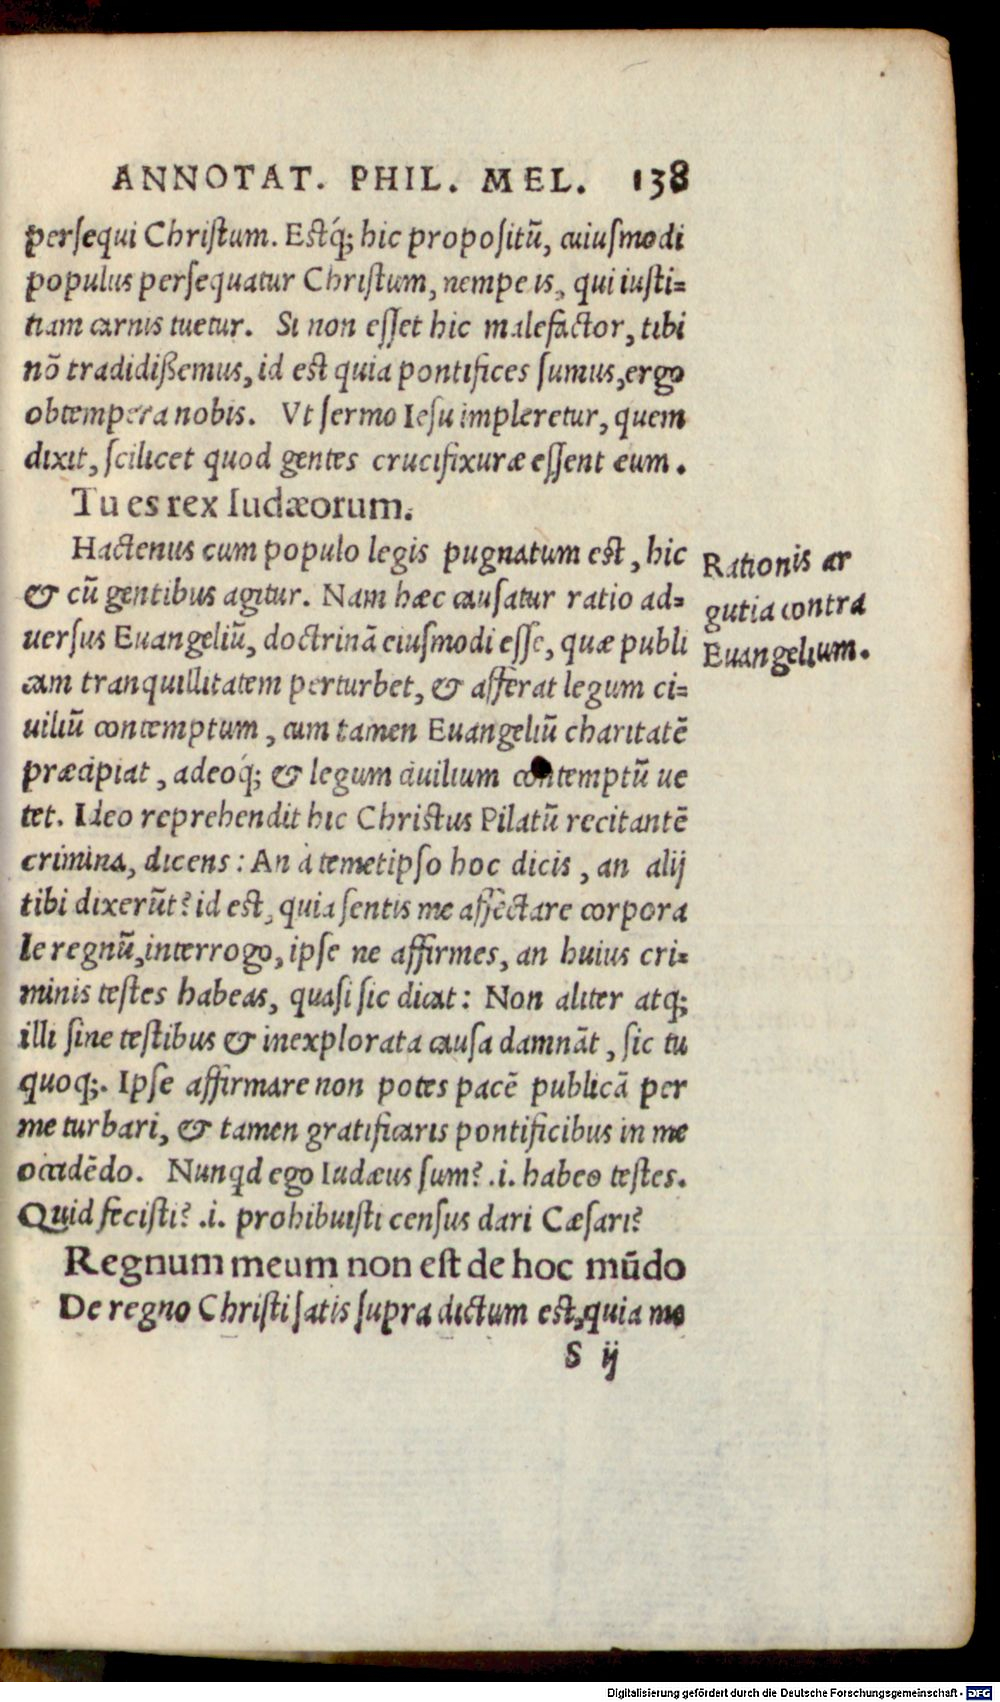 ANNOTAT. PHIL. MEL. 138
persequi Christum. Estq́; hic propositũ, cuiusmodi
populus persequatur Christum, nempe is, qui iusti=
tiam carnis tuetur. Si non esset hic malefactor, tibi
nõ tradidißemus, id est quia pontifices sumus, ergo
obtempera nobis. Vt sermo Iesu impleretur, quem
dixit, scilicet quod gentes crucifixuræ essent eum.
Tu es rex Iudæorum.
Hactenus cum populo legis pugnatum est, hic
& cũ gentibus agitur. Nam hæc causatur ratio ad=
uersus Euangeliũ, doctrinã eiusmodi esse, quæ publi
cam tranquillitatem perturbet, & afferat legum ci=
uiliũ contemptum, cum tamen Euangeliũ charitatẽ
præcipiat, adeoq́; & legum ciuilium contemptũ ue
tet. Ideo reprehendit hic Christus Pilatũ recitantẽ
crimina, dicens: An à temetipso hoc dicis, an alij
tibi dixerũt? id est, quia sentis me affectare corpora
le regnũ, interrogo, ipse ne affirmes, an huius cri=
minis testes habeas, quasi sic dicat: Non aliter atq;
illi sine testibus & inexplorata causa damnãt, sic tu
quoq;. Ipse affirmare non potes pacẽ publicã per
me turbari, & tamen gratificaris pontificibus in me
occidẽdo. Nunqd ego Iudæus sum? .i. habeo testes.
Quid fecisti? .i. prohibuisti census dari Cæsari?
Regnum meum non est de hoc mũdo
De regno Christi satis supra dictum est, quia mo
S ij
Rationis ar
gutia contra
Euangelium.
Digitalisierung gefördert durch die Deutsche Forschungsgemeinschaft - DFG